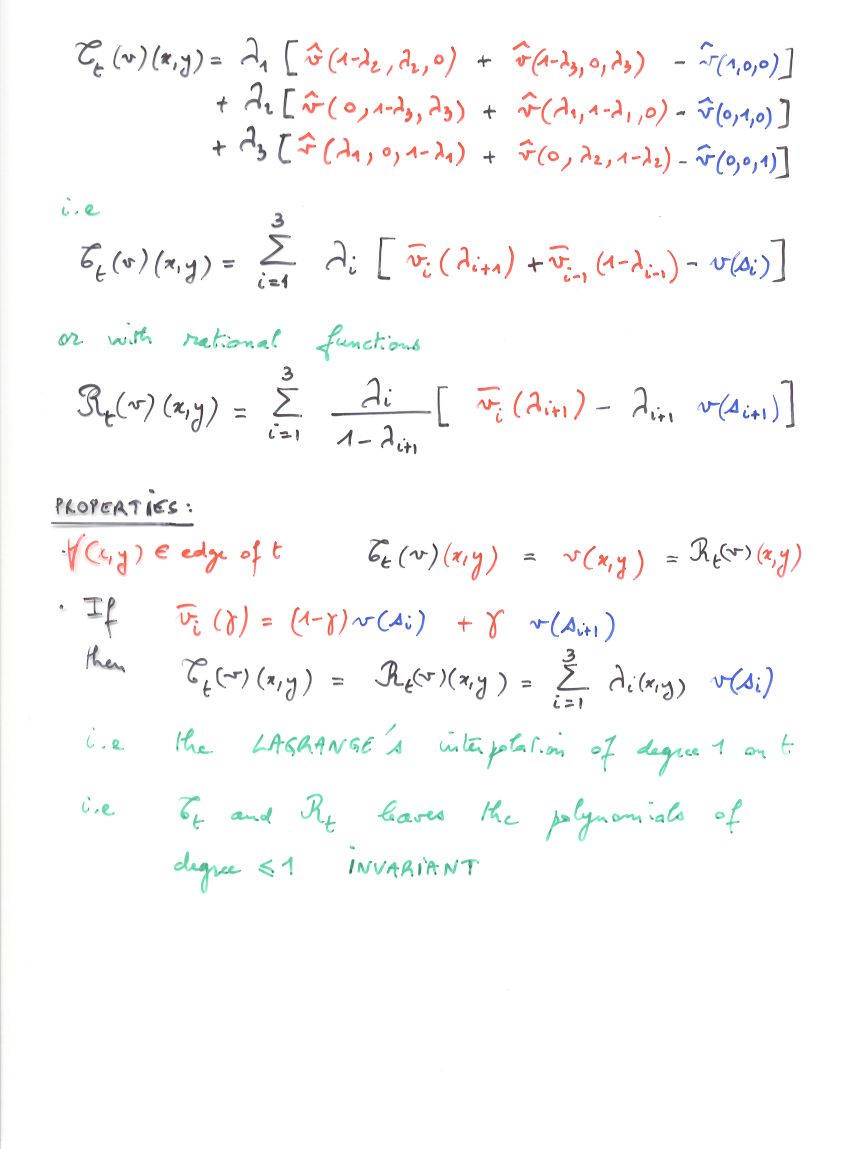 𝒞ₜ(v)(x,y) = λ₁ [ v̂(1-λ₂, λ₂, 0) + v̂(1-λ₃, 0, λ₃) - v̂(1,0,0)]
+ λ₂ [ v̂(0, 1-λ₃, λ₃) + v̂(λ₁, 1-λ₁, 0) - v̂(0,1,0)]
+ λ₃ [ v̂(λ₁, 0, 1-λ₁) + v̂(0, λ₂, 1-λ₂) - v̂(0,0,1)]
i.e
𝒞ₜ(v)(x,y) = Σ_{i=1}^{3} λᵢ [ v̄ᵢ(λᵢ₊₁) + v̄ᵢ₋₁(1-λᵢ₋₁) - v(sᵢ)]
or with rational functions
ℛₜ(v)(x,y) = Σ_{i=1}^{3} λᵢ/(1-λᵢ₊₁) [ v̄ᵢ(λᵢ₊₁) - λᵢ₊₁ v(sᵢ₊₁)]
PROPERTIES :
· ∀(x,y) ∈ edge of t 𝒞ₜ(v)(x,y) = v(x,y) = ℛₜ(v)(x,y)
· If v̄ᵢ(γ) = (1-γ)v(sᵢ) + γ v(sᵢ₊₁)
then 𝒞ₜ(v)(x,y) = ℛₜ(v)(x,y) = Σ_{i=1}^{3} λᵢ(x,y) v(sᵢ)
i.e the LAGRANGE's interpolation of degree 1 on t
i.e 𝒞ₜ and ℛₜ leaves the polynomials of
degree ≤ 1 INVARIANT